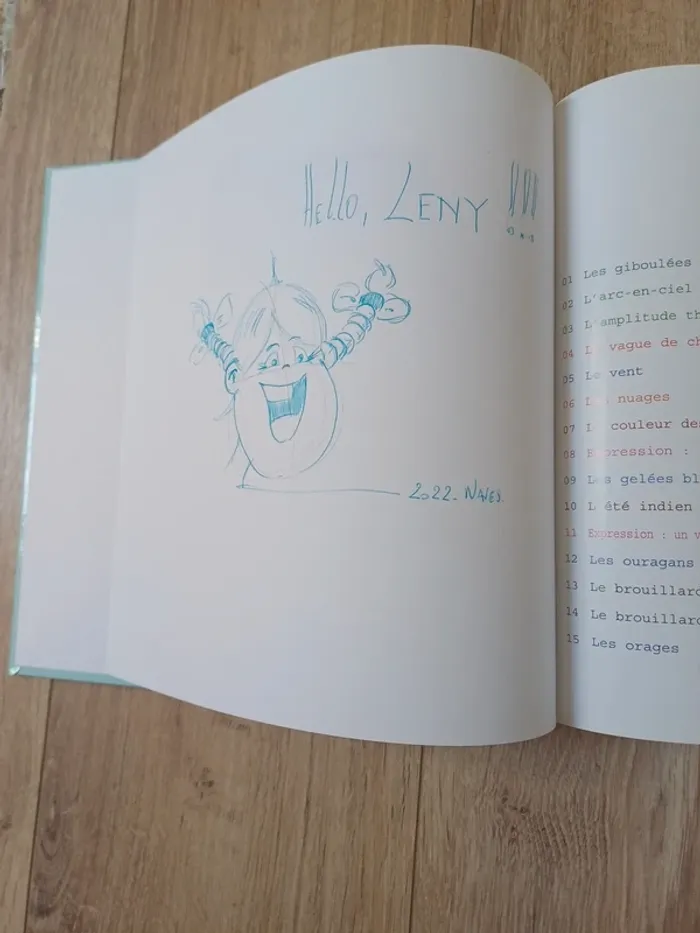 Hello, LENY !!!
2022.
01 Les giboulées
02 L'arc-en-ciel
03 L'amplitude th
04 La vague de ch
05 Le vent
06 Les nuages
07 La couleur des
08 Expression :
09 Les gelées bl
10 L'été indien
11 Expression : un v
12 Les ouragans
13 Le brouillard
14 Le brouillard
15 Les orages